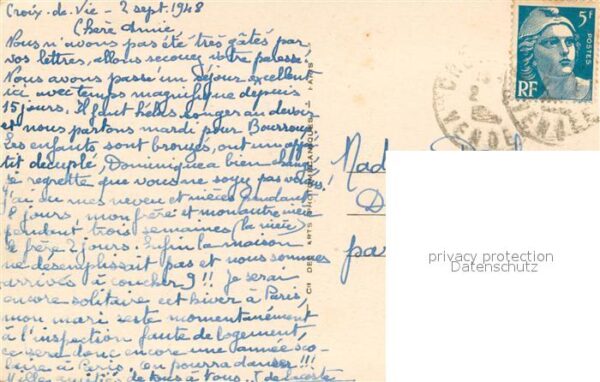 Croix-de-Vie - 2 sept. 1948
Chère Amie,
Nous n'avons pas été très gâtés par
vos lettres, allons secouez votre paresse.
Nous avons passé un séjour excellent
ici avec temps magnifique depuis
15 jours. Il faut hélas songer au devoir
et nous partons mardi pour
Les enfants sont bronzés, ont un appé-
tit décuplé, Dominique a bien changé
Je regrette que vous ne soyez pas
j'ai eu mes neveu et nièces pendant
8 jours, mon frère et mon autre nièce
pendant trois semaines (la nièce)
le frère 2 jours. Enfin la maison
ne désemplissait pas et nous sommes
arrivés à coucher 9!! Je serai
encore solitaire cet hiver à Paris,
mon mari reste momentanément
à l'inspection faute de logement,
ce sera donc encore une année sco-
laire à Paris, on pourra danser!!!
Mille amitiés de tous à vous.
Cie DES ARTS PHOTOMÉCANIQUES - PARIS
5F
POSTES
RF
VENDÉE
VENDÉE
Mad
D
par
privacy protection
Datenschutz